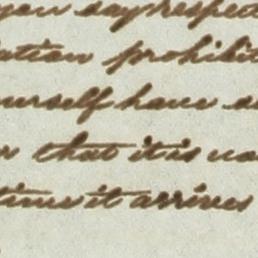 you say respect
ation prohibit
ourself have
that it is
time it arrives